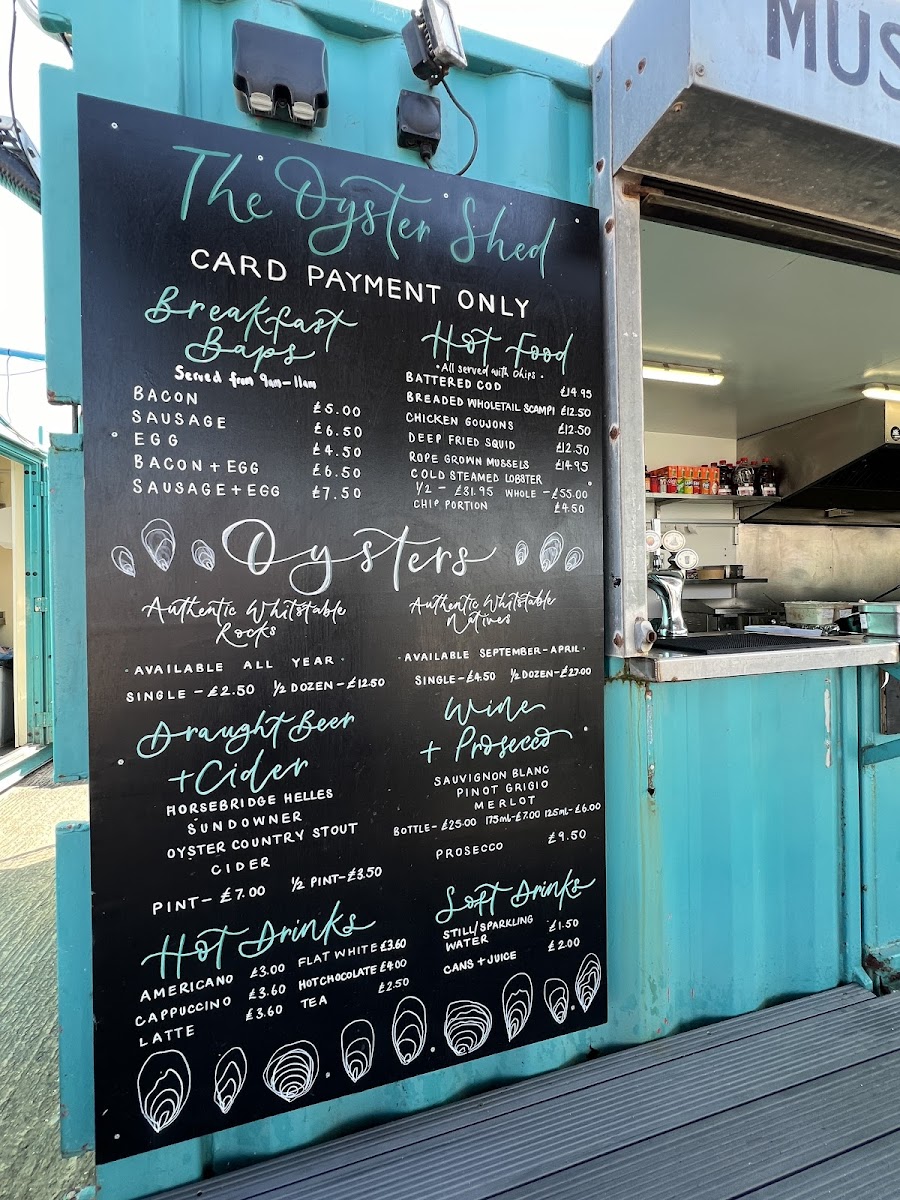 MUS
The Oyster Shed
CARD PAYMENT ONLY
Breakfast
Baps
Served from 9am-11am
BACON £5.00
SAUSAGE £6.50
EGG £4.50
BACON + EGG £6.50
SAUSAGE + EGG £7.50
Hot Food
• All served with chips •
BATTERED COD £14.95
BREADED WHOLETAIL SCAMPI £12.50
CHICKEN GOUJONS £12.50
DEEP FRIED SQUID £12.50
ROPE GROWN MUSSELS £14.95
COLD STEAMED LOBSTER
1/2 - £31.95 WHOLE - £55.00
CHIP PORTION £4.50
Oysters
Authentic Whitstable
Rocks
- AVAILABLE ALL YEAR -
SINGLE - £2.50 1/2 DOZEN - £12.50
Authentic Whitstable
Natives
- AVAILABLE SEPTEMBER - APRIL -
SINGLE - £4.50 1/2 DOZEN - £27.00
Draught Beer
+ Cider
HORSEBRIDGE HELLES
SUNDOWNER
OYSTER COUNTRY STOUT
CIDER
PINT - £7.00 1/2 PINT - £3.50
Wine
+ Prosecco
SAUVIGNON BLANC
PINOT GRIGIO
MERLOT
BOTTLE - £25.00 175ml - £7.00 125ml - £6.00
PROSECCO £9.50
Hot Drinks
AMERICANO £3.00
CAPPUCCINO £3.60
LATTE £3.60
FLAT WHITE £3.60
HOT CHOCOLATE £4.00
TEA £2.50
Soft Drinks
STILL/SPARKLING
WATER £1.50
CANS + JUICE £2.00